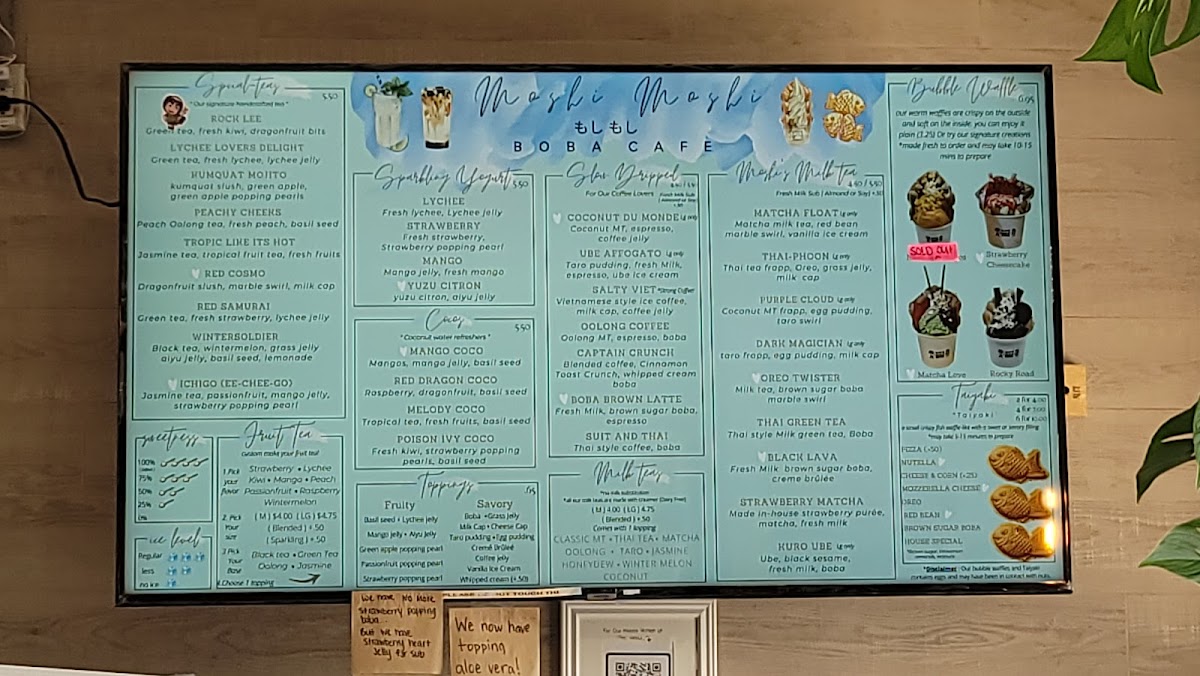 Special-teas
5.50
* Our signature handcrafted tea *
ROCK LEE
Green tea, fresh kiwi, dragonfruit bits
LYCHEE LOVERS DELIGHT
Green tea, fresh lychee, lychee jelly
KUMQUAT MOJITO
kumquat slush, green apple,
green apple popping pearls
PEACHY CHEEKS
Peach Oolong tea, fresh peach, basil seed
TROPIC LIKE ITS HOT
Jasmine tea, tropical fruit tea, fresh fruits
RED COSMO
Dragonfruit slush, marble swirl, milk cap
RED SAMURAI
Green tea, fresh strawberry, lychee jelly
WINTERSOLDIER
Black tea, wintermelon, grass jelly
aiyu jelly, basil seed, lemonade
ICHIGO (EE-CHEE-GO)
Jasmine tea, passionfruit, mango jelly,
strawberry popping pearl
sweetness
100%
75%
50%
25%
0%
ice level
Regular
less
no ice
Fruit Tea
Custom make your fruit tea!
1. Pick
your
flavor
Strawberry • Lychee
Kiwi • Mango • Peach
Passionfruit • Raspberry
Wintermelon
2. Pick
Your
size
( M ) $4.00 ( LG ) $4.75
( Blended ) +.50
( Sparkling ) +.50
3. Pick
Your
Base
Black tea • Green Tea
Oolong • Jasmine
4. Choose 1 topping
Moshi Moshi
もしもし
BOBA CAFE
Sparkling Yogurt
5.50
LYCHEE
Fresh lychee, Lychee jelly
STRAWBERRY
Fresh strawberry,
Strawberry popping pearl
MANGO
Mango jelly, fresh mango
YUZU CITRON
yuzu citron, aiyu jelly
Cocos
5.50
* Coconut water refreshers *
MANGO COCO
Mangos, mango jelly, basil seed
RED DRAGON COCO
Raspberry, dragonfruit, basil seed
MELODY COCO
Tropical tea, fresh fruits, basil seed
POISON IVY COCO
Fresh kiwi, strawberry popping
pearls, basil seed
Toppings
.65
Fruity
Basil seed • Lychee jelly
Mango Jelly • Aiyu Jelly
Green apple popping pearl
Passionfruit popping pearl
Strawberry popping pearl
Savory
Boba • Grass Jelly
Milk Cap • Cheese Cap
Taro pudding • Egg pudding
Creme Brûleé
Coffee jelly
Vanilla Ice Cream
Whipped cream (+.50)
Slow Dripped
For Our Coffee Lovers
4.80 / 5.50
Fresh Milk Sub
( Almond or Soy)
+.50
COCONUT DU MONDE lg only
Coconut MT, espresso,
coffee jelly
UBE AFFOGATO lg only
Taro pudding, fresh Milk,
espresso, ube ice cream
SALTY VIET *Strong Coffee*
Vietnamese style ice coffee,
milk cap, coffee jelly
OOLONG COFFEE
Oolong MT, espresso, boba
CAPTAIN CRUNCH
Blended coffee, Cinnamon
Toast Crunch, whipped cream
boba
BOBA BROWN LATTE
Fresh Milk, brown sugar boba,
espresso
SUIT AND THAI
Thai style coffee, boba
Milk teas
*no milk substitution
*all our milk teas are made with creamer (Dairy Free)
( M ) 4.00 ( LG ) 4.75
( Blended ) +.50
Comes with 1 topping
CLASSIC MT • THAI TEA • MATCHA
OOLONG • TARO • JASMINE
HONEYDEW • WINTER MELON
COCONUT
Moshi's Milk tea
4.80 / 5.50
Fresh Milk Sub ( Almond or Soy) +.50
MATCHA FLOAT lg only
Matcha milk tea, red bean
marble swirl, vanilla ice cream
THAI-PHOON lg only
Thai tea frapp, Oreo, grass jelly,
milk cap
PURPLE CLOUD lg only
Coconut MT frapp, egg pudding,
taro swirl
DARK MAGICIAN lg only
taro frapp, egg pudding, milk cap
OREO TWISTER
Milk tea, brown sugar boba
marble swirl
THAI GREEN TEA
Thai style Milk green tea, Boba
BLACK LAVA
Fresh Milk, brown sugar boba,
creme brûlée
STRAWBERRY MATCHA
Made in-house strawberry purée,
matcha, fresh milk
KURO UBE lg only
Ube, black sesame,
fresh milk, boba
Bubble Waffle
6.95
our worm waffles are crispy on the outside
and soft on the inside. you can enjoy it
plain (3.25) Or try our signature creations
*made fresh to order and may take 10-15
mins to prepare
SOLD OUT
Strawberry
Cheesecake
Matcha Love
Rocky Road
Taiyaki
*Taiyaki*
2 for 4.00
4 for 7.00
6 for 10.00
a small crispy fish waffle-like with a sweet or savory filling
*may take 5-15 minutes to prepare
PIZZA (+.50)
NUTELLA
CHEESE & CORN (+.25)
MOZZERELLA CHEESE
OREO
RED BEAN
BROWN SUGAR BOBA
HOUSE SPECIAL
*Disclaimer : Our bubble waffles and Taiyaki
contains eggs and may have been in contact with nuts.
We have No More
strawberry popping
boba...
But we have
strawberry heart
jelly for sub
We now have
topping
aloe vera!